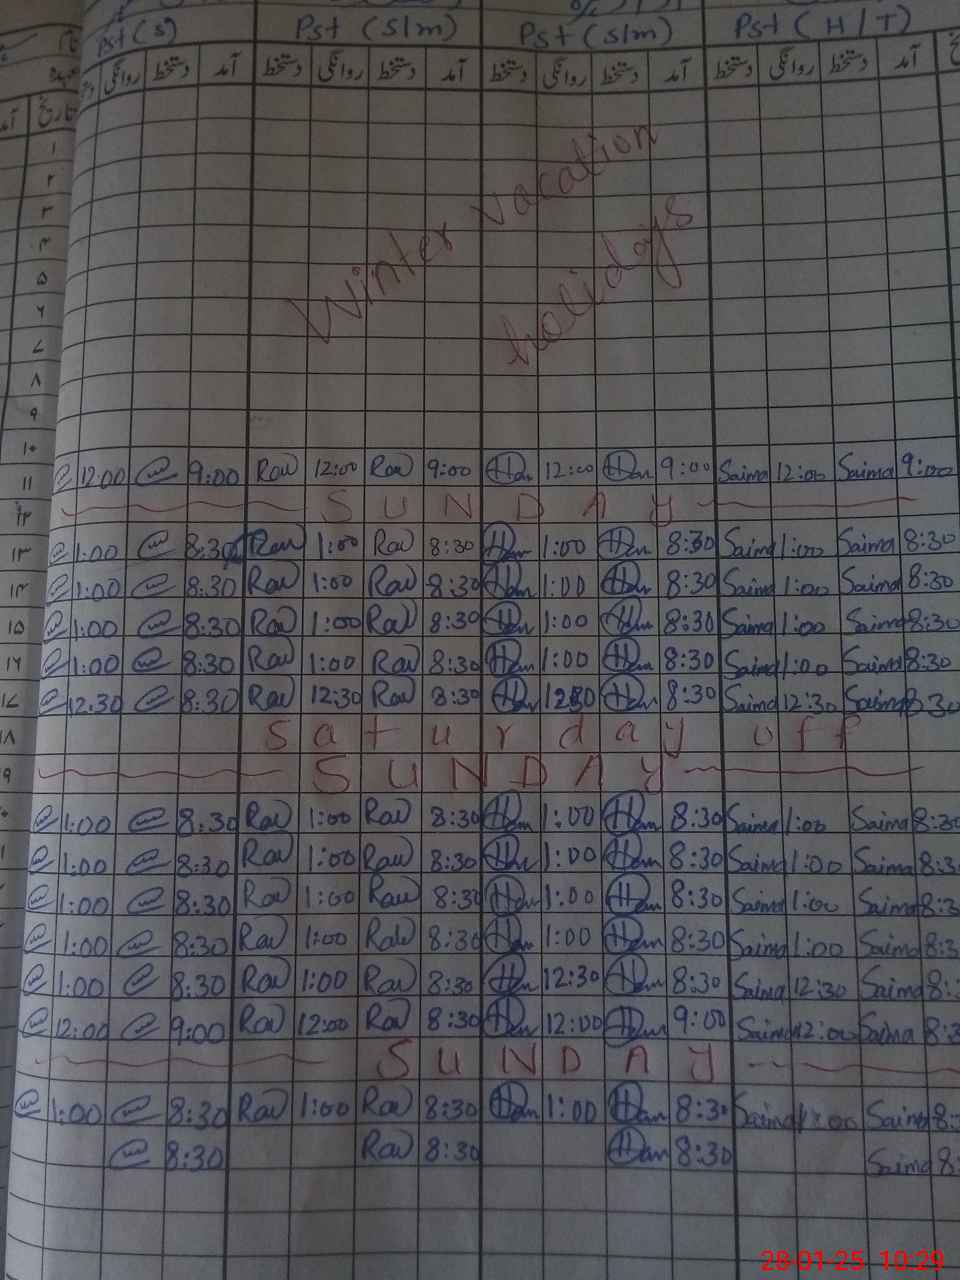 Pst (S) Pst (S/m) Pst (S/m) Pst (H/T)
روانگی دستخط آمد دستخط روانگی دستخط آمد دستخط روانگی دستخط آمد دستخط روانگی دستخط آمد
تاریخ آمد
۱
۲
۳
۴
۵
۶
۷
۸
۹
Winter vacation
holidays
۱۰
۱۱ 12:00 9:00 Raw 12:00 Raw 9:00 Han 12:00 Han 9:00 Saima 12:00 Saima 9:00
۱۲ SUNDAY
۱۳ 1:00 8:30 Raw 1:00 Raw 8:30 Han 1:00 Han 8:30 Saima 1:00 Saima 8:30
۱۴ 1:00 8:30 Raw 1:00 Raw 8:30 Han 1:00 Han 8:30 Saima 1:00 Saima 8:30
۱۵ 1:00 8:30 Raw 1:00 Raw 8:30 Han 1:00 Han 8:30 Saima 1:00 Saima 8:30
۱۶ 1:00 8:30 Raw 1:00 Raw 8:30 Han 1:00 Han 8:30 Saima 1:00 Saima 8:30
۱۷ 12:30 8:30 Raw 12:30 Raw 8:30 Han 12:30 Han 8:30 Saima 12:30 Saima 8:30
۱۸ Saturday off
۹ SUNDAY
1:00 8:30 Raw 1:00 Raw 8:30 Han 1:00 Han 8:30 Saima 1:00 Saima 8:30
1:00 8:30 Raw 1:00 Raw 8:30 Han 1:00 Han 8:30 Saima 1:00 Saima 8:3
1:00 8:30 Raw 1:00 Raw 8:30 Han 1:00 Han 8:30 Saima 1:00 Saima 8:3
1:00 8:30 Raw 1:00 Raw 8:30 Han 1:00 Han 8:30 Saima 1:00 Saima 8:3
1:00 8:30 Raw 1:00 Raw 8:30 Han 12:30 Han 8:30 Saima 12:30 Saima 8:
12:00 9:00 Raw 12:00 Raw 8:30 Han 12:00 Han 9:00 Saima 12:00 Saima 8:3
SUNDAY
1:00 8:30 Raw 1:00 Raw 8:30 Han 1:00 Han 8:30 Saima 1:00 Saima 8:
8:30 Raw 8:30 Han 8:30 Saima 8:
28-01-25 10:29